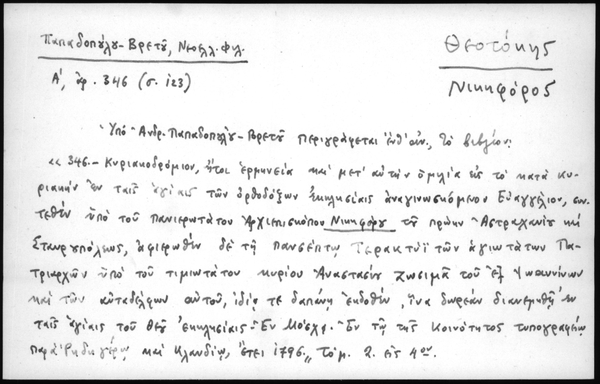 Παπαδοπούλου-Βρετοῦ, Νεοελλ. Φιλ.
Θεοτόκης
Α', ἀρ. 346 (σ. 123)
Νικηφόρος
Ὑπὸ Ἀνδρ. Παπαδοπούλου-Βρετοῦ περιγράφεται τὸ βιβλίον:
«346.- Κυριακοδρόμιον, ἤτοι ἑρμηνεία καὶ μετ' αὐτὴν ὁμιλία εἰς τὸ κατὰ κυ-
ριακὴν ἐν ταῖς ἁγίαις τῶν ὀρθοδόξων ἐκκλησίαις ἀναγινωσκόμενον Εὐαγγέλιον, συν-
τεθὲν ὑπὸ τοῦ πανιερωτάτου Ἀρχιεπισκόπου Νικηφόρου τοῦ πρώην Ἀστραχανίου καὶ
Σταυρουπόλεως, ἀφιερωθὲν δὲ τῇ πανσέπτῳ Τετρακτύϊ τῶν ἁγιωτάτων Πα-
τριαρχῶν ὑπὸ τοῦ τιμιωτάτου κυρίου Ἀναστασίου Ζωσιμᾶ τοῦ ἐξ Ἰωαννίνων
καὶ τῶν αὐταδέλφων αὐτοῦ, ἰδίᾳ τε δαπάνῃ ἐκδοθὲν, ἵνα δωρεὰν διανεμηθῇ ἐν
ταῖς ἁγίαις τοῦ Θεοῦ ἐκκλησίαις. Ἐν Μόσχᾳ. Ἐν τῷ τῆς Κοινότητος τυπογραφείῳ
παρὰ Ῥηδιγέρῳ καὶ Κλαυδίῳ, ἔτει 1796.,, τόμ. 2. εἰς 4ον.